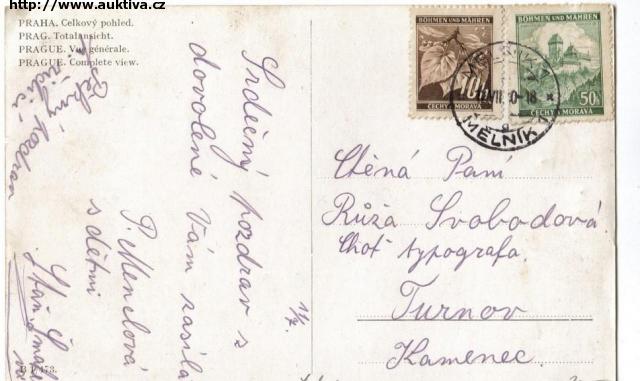 http://www.auktiva.cz
PRAHA. Celkový pohled.
PRAG. Totalansicht.
PRAGUE. Vue générale.
PRAGUE. Complete view.
Pěkný pozdrav
Srdečný pozdrav s
dovolené Vám zasílá
P. Menclová
s dětmi
BÖHMEN UND MÄHREN
ČECHY A MORAVA
BÖHMEN UND MÄHREN
50h
ČECHY A MORAVA
MĚLNÍK
Ctěná Paní
Růža Svobodová
Choť typografa
Turnov
Kamenec